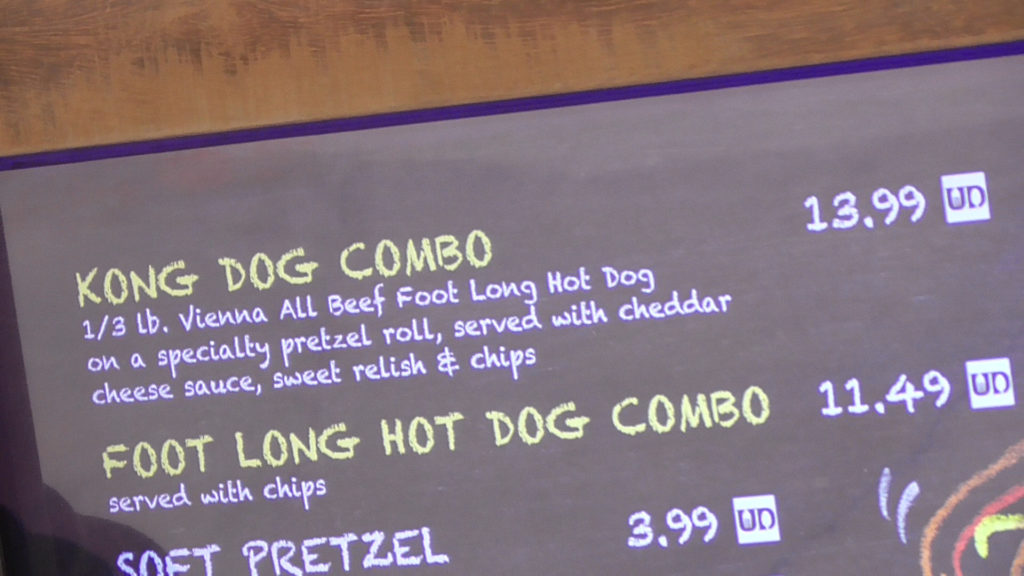 KONG DOG COMBO 13.99 UD
1/3 lb. Vienna All Beef Foot Long Hot Dog
on a specialty pretzel roll, served with cheddar
cheese sauce, sweet relish & chips
FOOT LONG HOT DOG COMBO 11.49 UD
served with chips
SOFT PRETZEL 3.99 UD